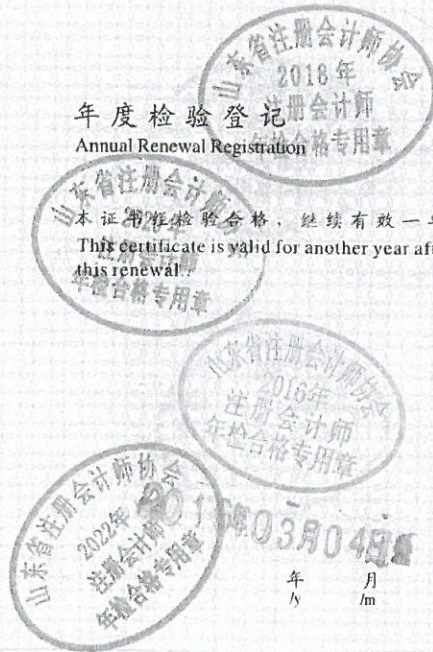 山东省注册会计师协会
2018年
注册会计师
年检合格专用章
年度检验登记
Annual Renewal Registration
山东省注册会计师
年检合格专用章
本证书经检验合格，继续有效一
This certificate is valid for another year aft
this renewal.
山东省注册会计师协会
2016年
注册会计师
年检合格专用章
山东省注册会计师协会
2022年
注册会计师
年检合格专用章
2016年03月04日
年 月
/y /m